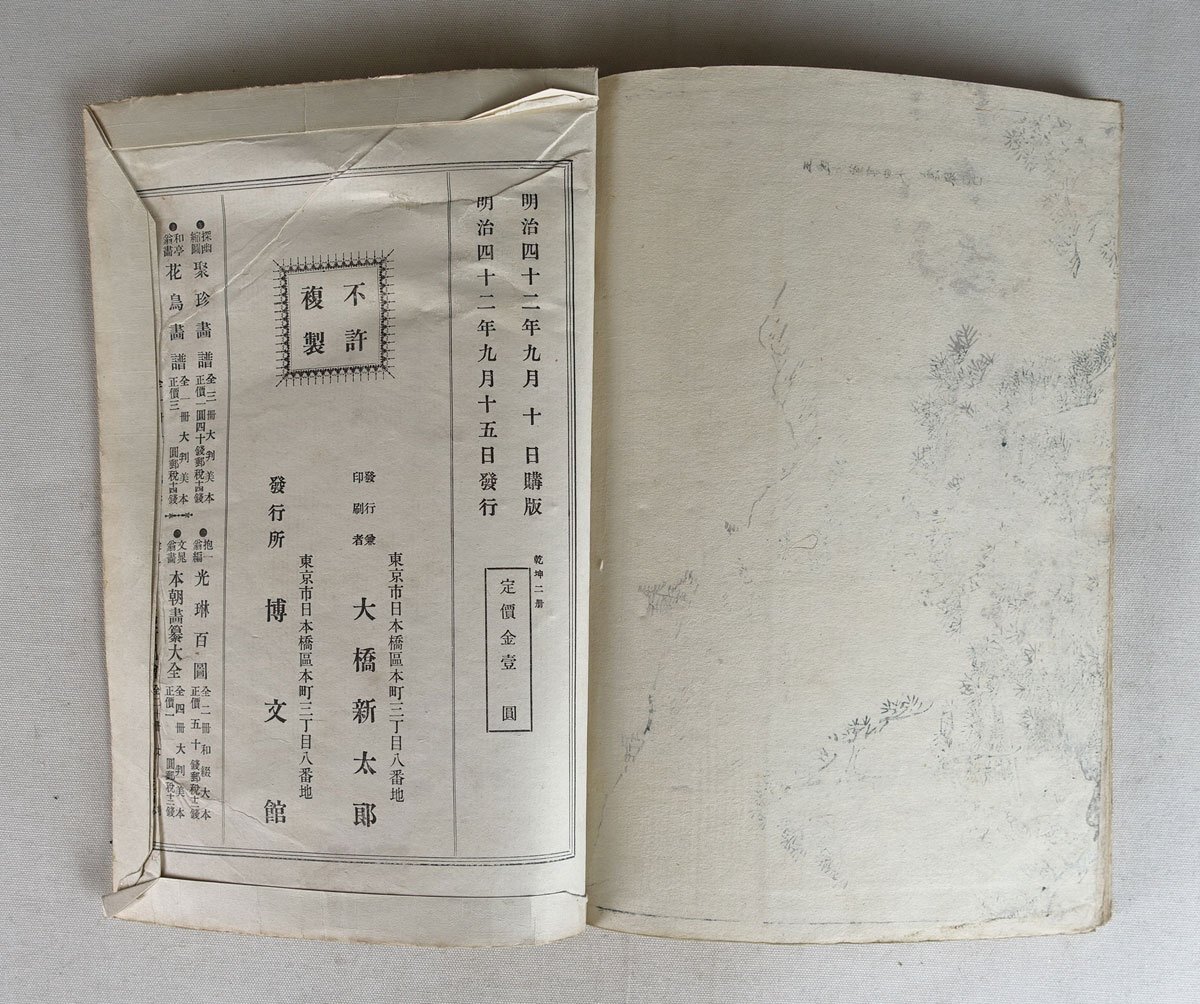 明治四十二年九月十日購版
明治四十二年九月十五日發行
乾坤二册
定價金壹圓
不許
複製
東京市日本橋區本町三丁目八番地
發行兼
印刷者
大橋新太郎
東京市日本橋區本町三丁目八番地
發行所 博文館
●探幽縮圖 聚珍畫譜 全三冊大判美本 正價一圓四十錢郵稅十四錢
●和亭翁畫 花鳥畫譜 全一冊大判美本 正價三圓郵稅十四錢
●抱一翁編 光琳百圖 全二冊和綴大本 正價五十錢郵稅十二錢
●文晁翁畫 本朝畫纂大全 全四冊大判美本 正價一圓郵稅十二錢